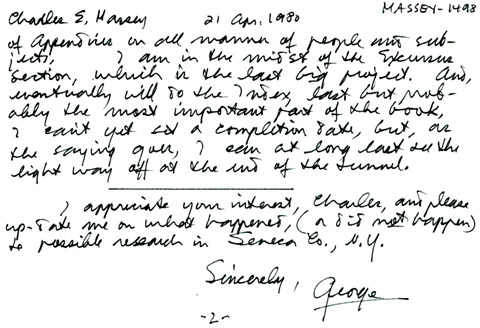 MASSEY-1498
Charles E. Massey 21 Apr. 1980
of Appendices on all manner of people and sub-
jects. I am in the midst of the Excursus
section, which is the last big project. And,
eventually will do the Index, last but prob-
ably the most important part of the book,
I can't yet set a completion date, but, as
the saying goes, I can at long last see the
light way off at the end of the tunnel.
I appreciate your interest, Charles, and please
up-date me on what happened, (or did not happen)
to possible research in Seneca Co., N.Y.
Sincerely, George
-2-